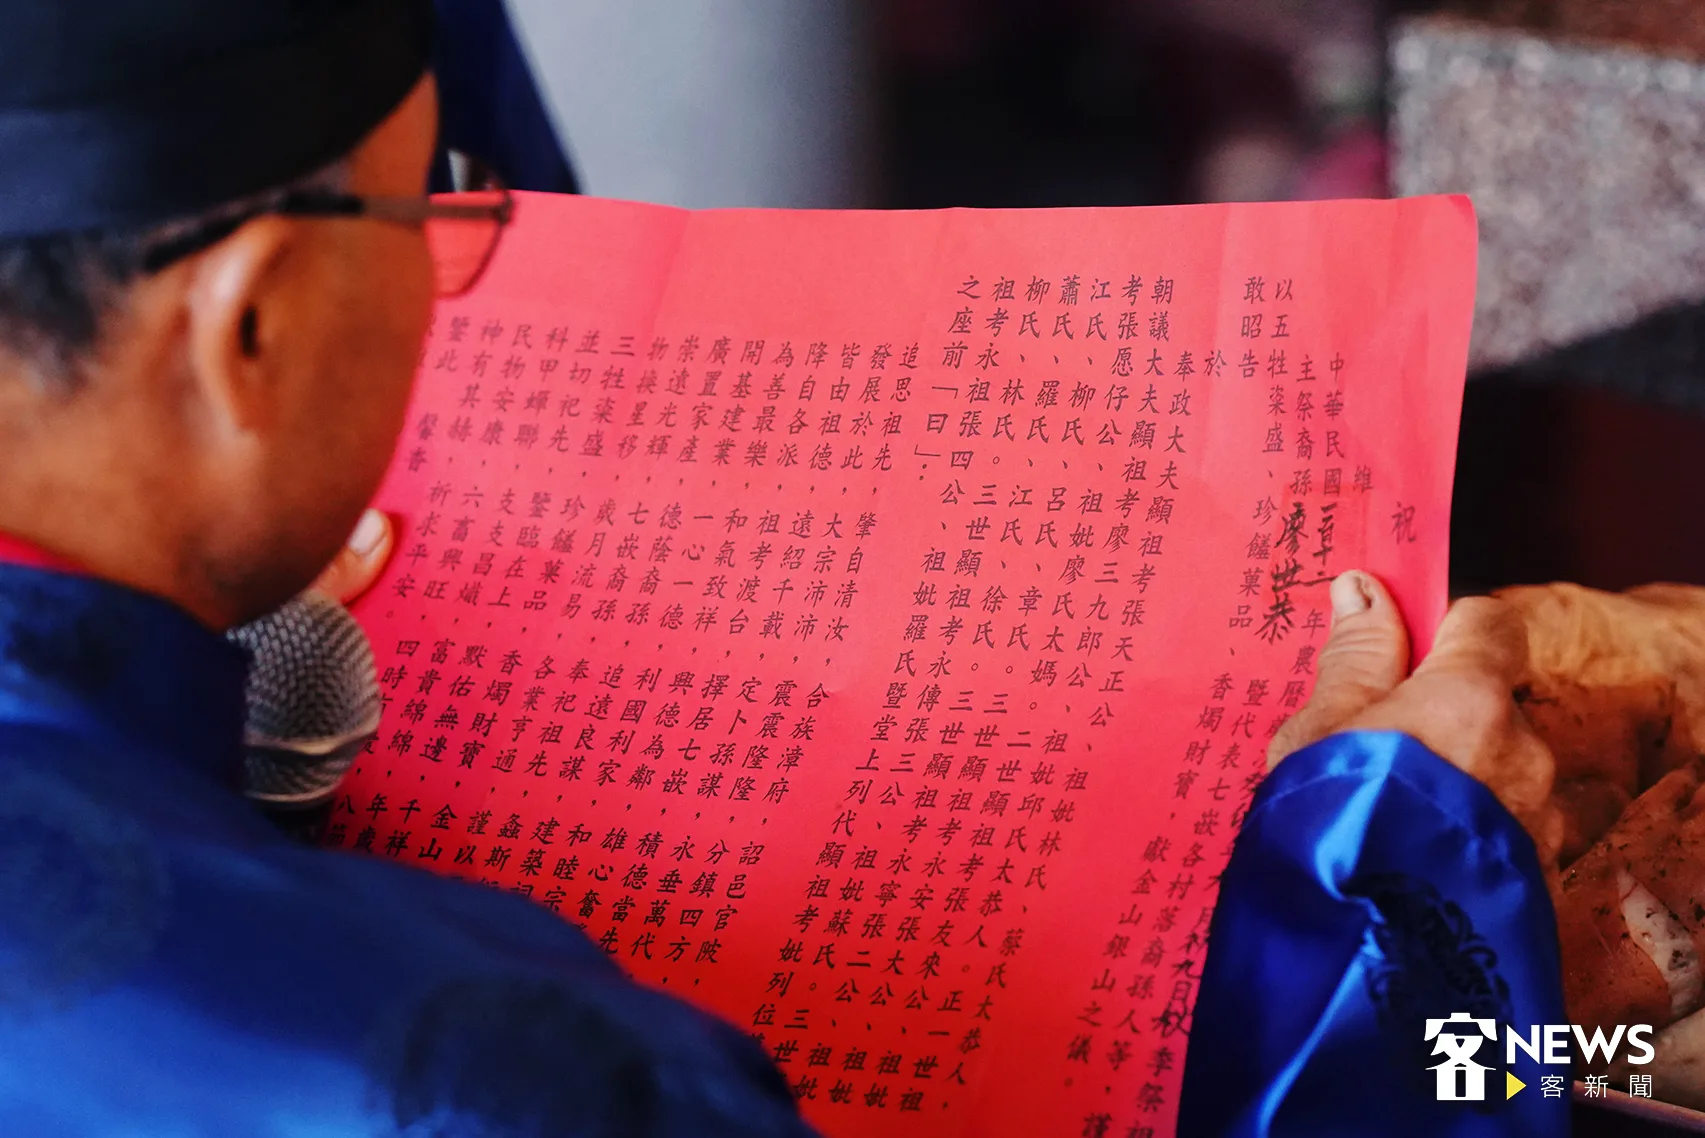 祝
維
中華民國
年農曆歲次
主祭裔孫廖世恭 暨代表七嵌各村落裔孫人等，謹
以五牲粢盛、珍饈菓品、香燭財寶，獻金山銀山之儀。
敢昭告
於
奉政大夫顯祖考張天正公、祖妣林氏、蔡氏太恭人
朝議大夫顯祖考廖三九郎公、祖妣邱氏太恭人。正一世祖
考張愿仔公、祖妣廖氏太媽。二世顯祖考張友來公、祖妣
江氏、柳氏、呂氏、章氏。三世顯祖考永安張大公、祖妣
蕭氏、羅氏、江氏、徐氏。三世顯祖考永寧張二公、祖妣
柳氏、林氏。三世顯祖考永傳張三公、祖妣蘇氏。三世
祖考永祖張四公、祖妣羅氏暨堂上列代顯祖考妣列位
之座前「曰」：
追思祖先，肇自清汝，合族漳府，詔邑官陂，
發展於此，大宗沛沛，震震隆隆，分鎮四方，
皆由祖德，遠紹千載，定卜孫謀，永垂萬代，
降自各派，祖考渡台，擇居七嵌，積德當先
為善最樂，和氣致祥，興德為鄰，雄心奮
開基建業，一心一德，利國利家，和睦宗
廣置家產，德蔭裔孫，追遠良謀，建築祠
崇遠光輝，七嵌裔孫，奉祀祖先，螽斯
物換星移，歲月流易，各業亨通，謹以
三牲粢盛，珍饈菓品，香燭財寶，金山
並切祀先，鑒臨在上，默佑無邊，千祥
科甲蟬聯，支支昌熾，富貴綿綿，年歲
民物安康，六畜興旺，四時有慶，八節
神有其赫，祈求平安。
鑒此馨香
客NEWS
客新聞